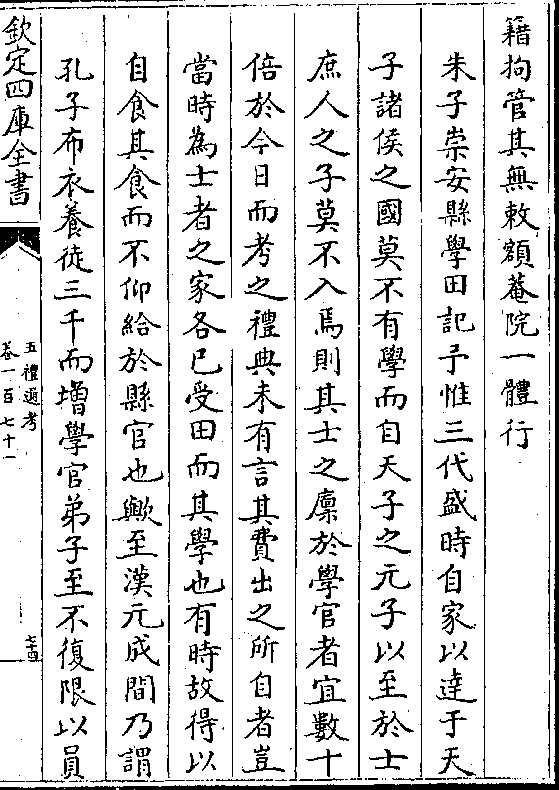 籍拘管其無敕額菴院一體行
朱子崇安縣學田記予惟三代盛時自家以達于天
子諸侯之國莫不有學而自天子之元子以至於士
庶人之子莫不入焉則其士之廪於學官者宜數十
倍於今日而考之禮典未有言其費出之所自者豈
當時為士者之家各已受田而其學也有時故得以
自食其食而不仰給於縣官也歟至漢元成間乃謂
孔子布衣養徒三千而增學官弟子至不復限以員
欽定四庫全書
五禮通考
卷一百七十一
七十四